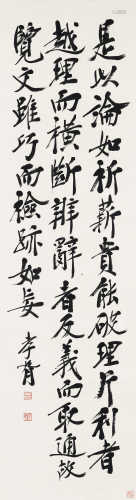 是以論如析薪貴能破理斤利者
越理而橫斷辯辭者反義而取通故
覽文雖巧而檢跡如妄 李